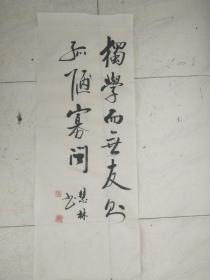 獨學而無友則
孤陋寡聞
慧林書